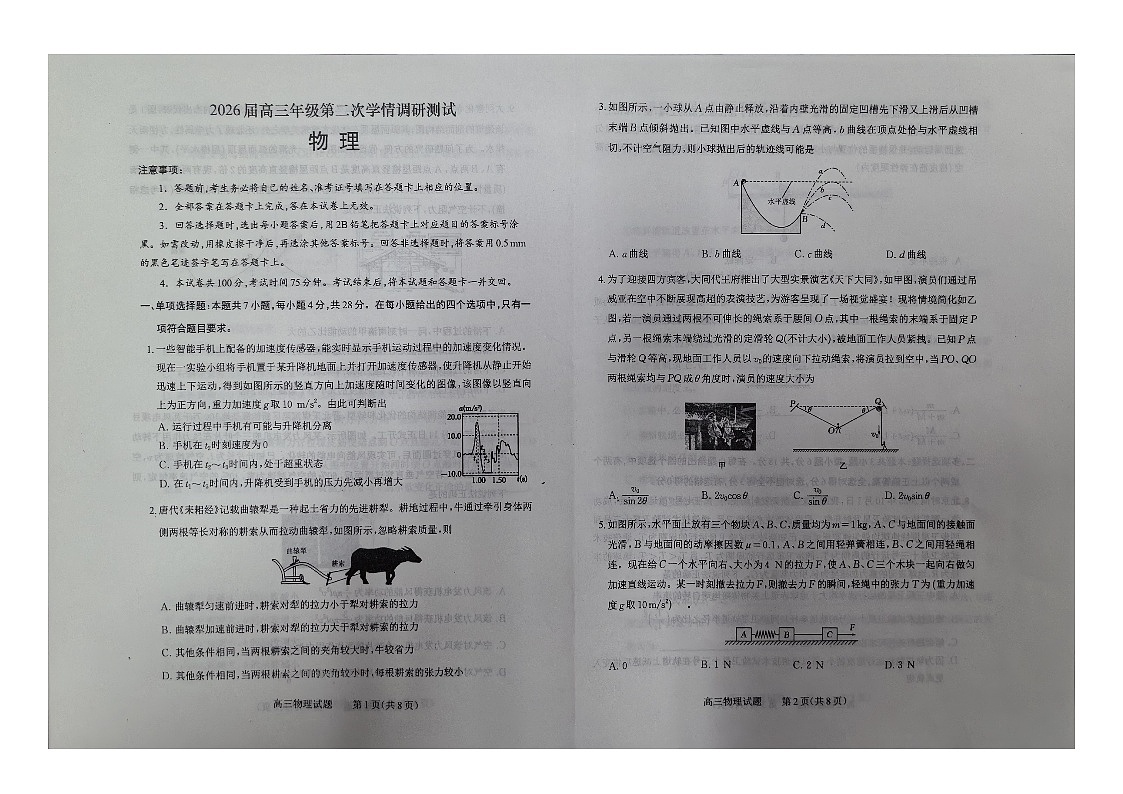 2026届高三年级第二次学情调研测试
物 理
注意事项:
1. 答题前,考生务必将自己的姓名、准考证号填写在答题卡上相应的位置。
2. 全部答案在答题卡上完成,答在本试卷上无效。
3. 回答选择题时,选出每小题答案后,用2B铅笔把答题卡上对应题目的答案标号涂
黑。如需改动,用橡皮擦干净后,再选涂其他答案标号。回答非选择题时,将答案用0.5 mm
的黑色笔迹签字笔写在答题卡上。
4. 本试卷共100分,考试时间75分钟。考试结束后,将本试题和答题卡一并交回。
一、单项选择题:本题共7小题,每小题4分,共28分。在每小题给出的四个选项中,只有一
项符合题目要求。
1. 一些智能手机上配备的加速度传感器,能实时显示手机运动过程中的加速度变化情况。
现在一实验小组将手机置于某升降机地面上并打开加速度传感器,使升降机从静止开始
迅速上下运动,得到如图所示的竖直方向上加速度随时间变化的图像,该图像以竖直向
上为正方向,重力加速度g取10 m/s²。由此可判断出
A. 运行过程中手机有可能与升降机分离
B. 手机在t₂时刻速度为0
C. 手机在t₂～t₃时间内,处于超重状态
D. 在t₁～t₂时间内,升降机受到手机的压力先减小再增大
a(m/s²)
20.0
10.0
0
-10.0
1.00 1.50 t(s)
2. 唐代《耒耜经》记载曲辕犁是一种起土省力的先进耕犁。耕地过程中,牛通过牵引身体两
侧两根等长对称的耕索从而拉动曲辕犁,如图所示,忽略耕索质量,则
曲辕犁
耕索
A. 曲辕犁匀速前进时,耕索对犁的拉力小于犁对耕索的拉力
B. 曲辕犁加速前进时,耕索对犁的拉力大于犁对耕索的拉力
C. 其他条件相同,当两根耕索之间的夹角较大时,牛较省力
D. 其他条件相同,当两根耕索之间的夹角较小时,每根耕索的张力较小
高三物理试题 第1页(共8页)
3. 如图所示,一小球从A点由静止释放,沿着内壁光滑的固定凹槽先下滑又上滑后从凹槽
末端B点倾斜抛出。已知图中水平虚线与A点等高,b曲线在顶点处恰与水平虚线相
切,不计空气阻力,则小球抛出后的轨迹线可能是
A
水平虚线
B
a
b
c
d
A. a曲线 B. b曲线 C. c曲线 D. d曲线
4. 为了迎接四方宾客,大同代王府推出了大型实景演艺《天下大同》,如甲图,演员们通过吊
威亚在空中不断展现高超的表演技艺,为游客呈现了一场视觉盛宴!现将情境简化如乙
图,若一演员通过两根不可伸长的绳索系于腰间O点,其中一根绳索的末端系于固定P
点,另一根绳索末端绕过光滑的定滑轮Q(不计大小),被地面工作人员紧拽。已知P点
与滑轮Q等高,现地面工作人员以v₀的速度向下拉动绳索,将演员拉到空中,当PO、QO
两根绳索均与PQ成θ角度时,演员的速度大小为
P θ θ Q
O
v₀
甲 乙
A. v₀/sin 2θ B. 2v₀cos θ C. v₀/sin θ D. 2v₀sin θ
5. 如图所示,水平面上放有三个物块A、B、C,质量均为m=1 kg,A、C与地面间的接触面
光滑,B与地面间的动摩擦因数μ=0.1,A、B之间用轻弹簧相连,B、C之间用轻绳相
连。现在给C一个水平向右、大小为4 N的拉力F,使A、B、C三个木块一起向右做匀
加速直线运动。某一时刻撤去拉力F,则撤去力F的瞬间,轻绳中的张力T为(重力加速
度g取10 m/s²)
A B C F
A. 0 B. 1 N C. 2 N D. 3 N
高三物理试题 第2页(共8页)